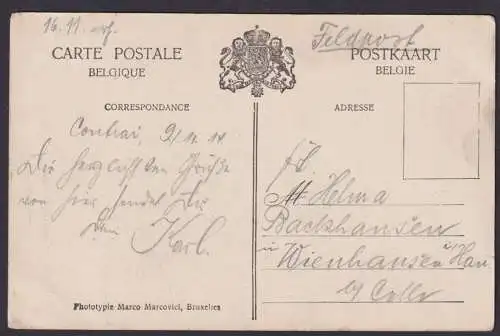 16. 11.
Feldpost
CARTE POSTALE
BELGIQUE
POSTKAART
BELGIE
CORRESPONDANCE
ADRESSE
9/11 14
Die herzlichsten Grüße
von hier sendet Dir
Dein Karl.
Helma
Backhausen
in Wienhausen
b/ Celle
Phototypie Marco Marcovici, Bruxelles